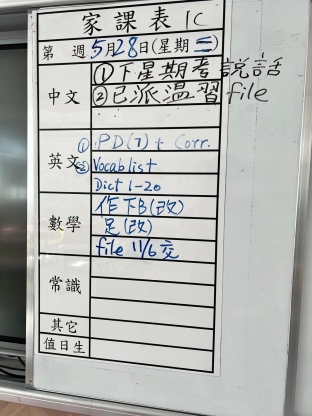 家課表 1C
第 週 5月28日(星期三)
中文
① 下星期考說話
② 已派溫習file
英文
① PD(7) + Corr.
② Vocab list
Dict 1-20
數學
作下B(改)
足(改)
file 11/6 交
常識
其它
值日生